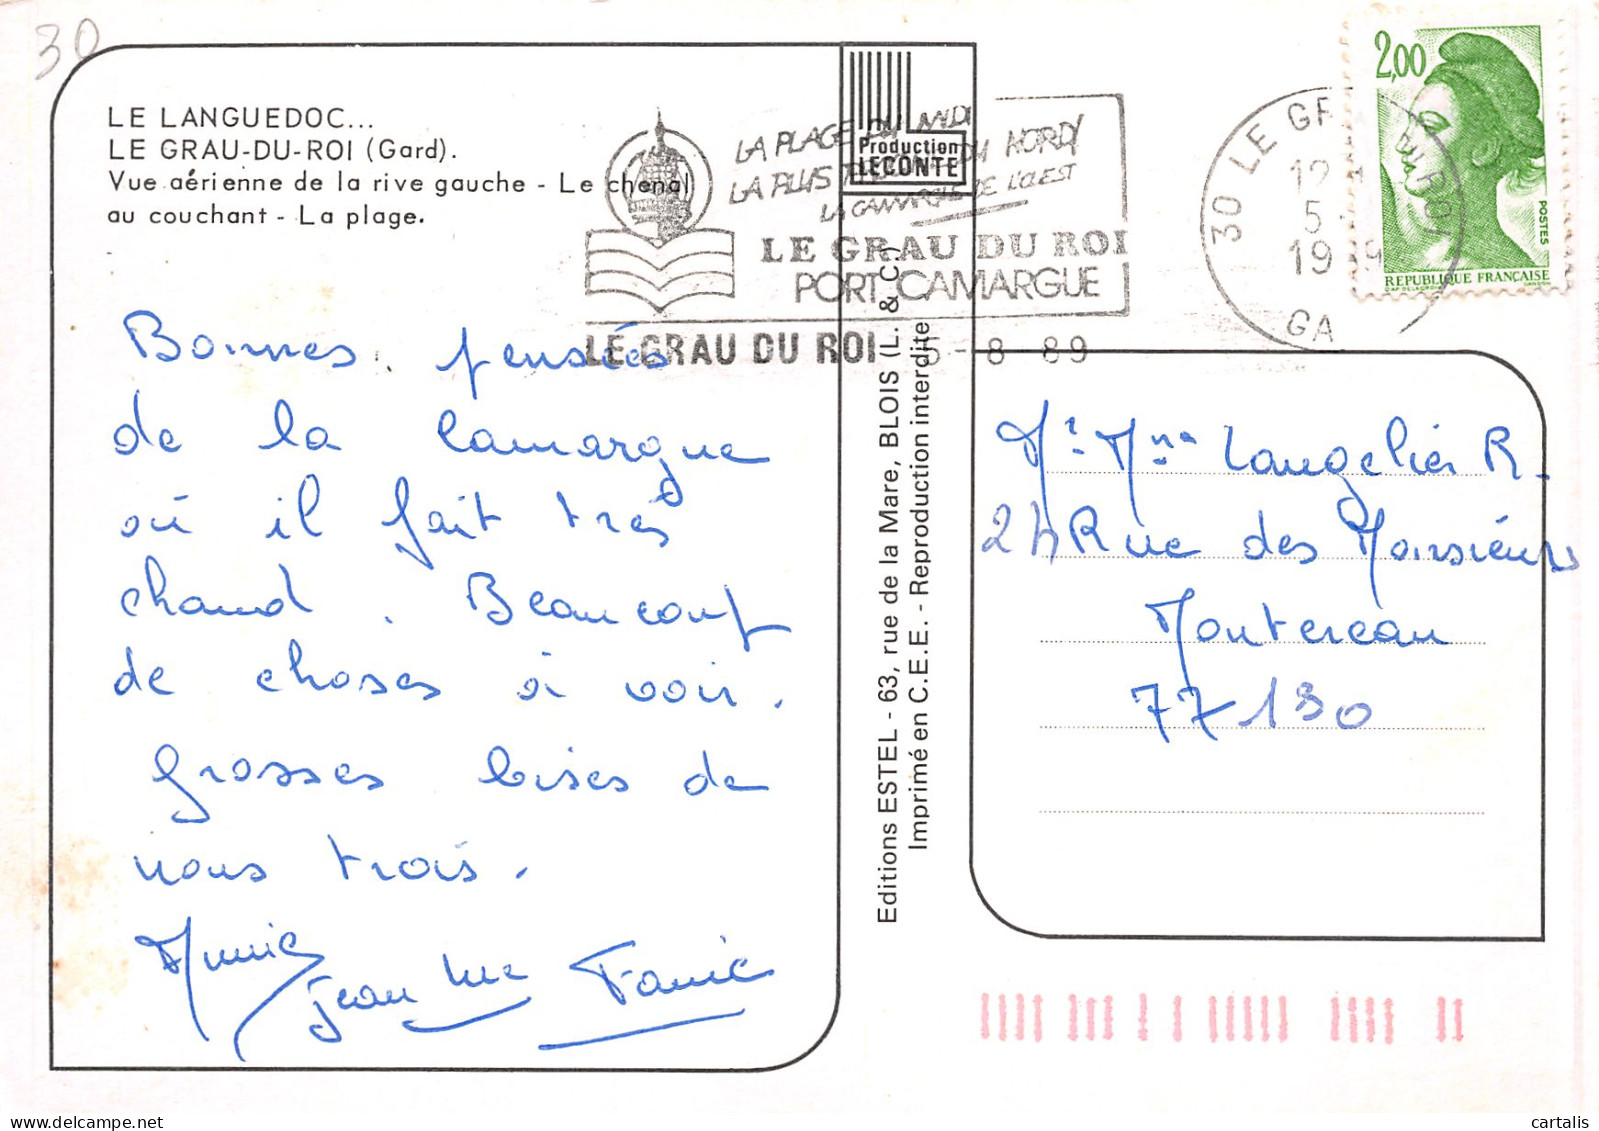 30
LE LANGUEDOC...
LE GRAU-DU-ROI (Gard).
Vue aérienne de la rive gauche - Le chenal
au couchant - La plage.
Production
LECONTE
LA PLAGE DU MIDI
LA PLUS DU NORD
LA CAMARGUE DE L'OUEST
LE GRAU DU ROI
PORT CAMARGUE
LE GRAU DU ROI 5-8-89
30 LE GR U ROI
12
5
19 9
GA
2,00
POSTES
REPUBLIQUE FRANÇAISE
Bonnes pensées
de la Camargue
où il fait très
chaud. Beaucoup
de choses à voir.
Grosses bises de
nous trois.
Annie
Jean Luc
Editions ESTEL - 63, rue de la Mare, BLOIS (L. & C.)
Imprimé en C.E.E. - Reproduction interdite
Mr Mme Langelier R.
24 Rue des
Montereau
77130
cartalis